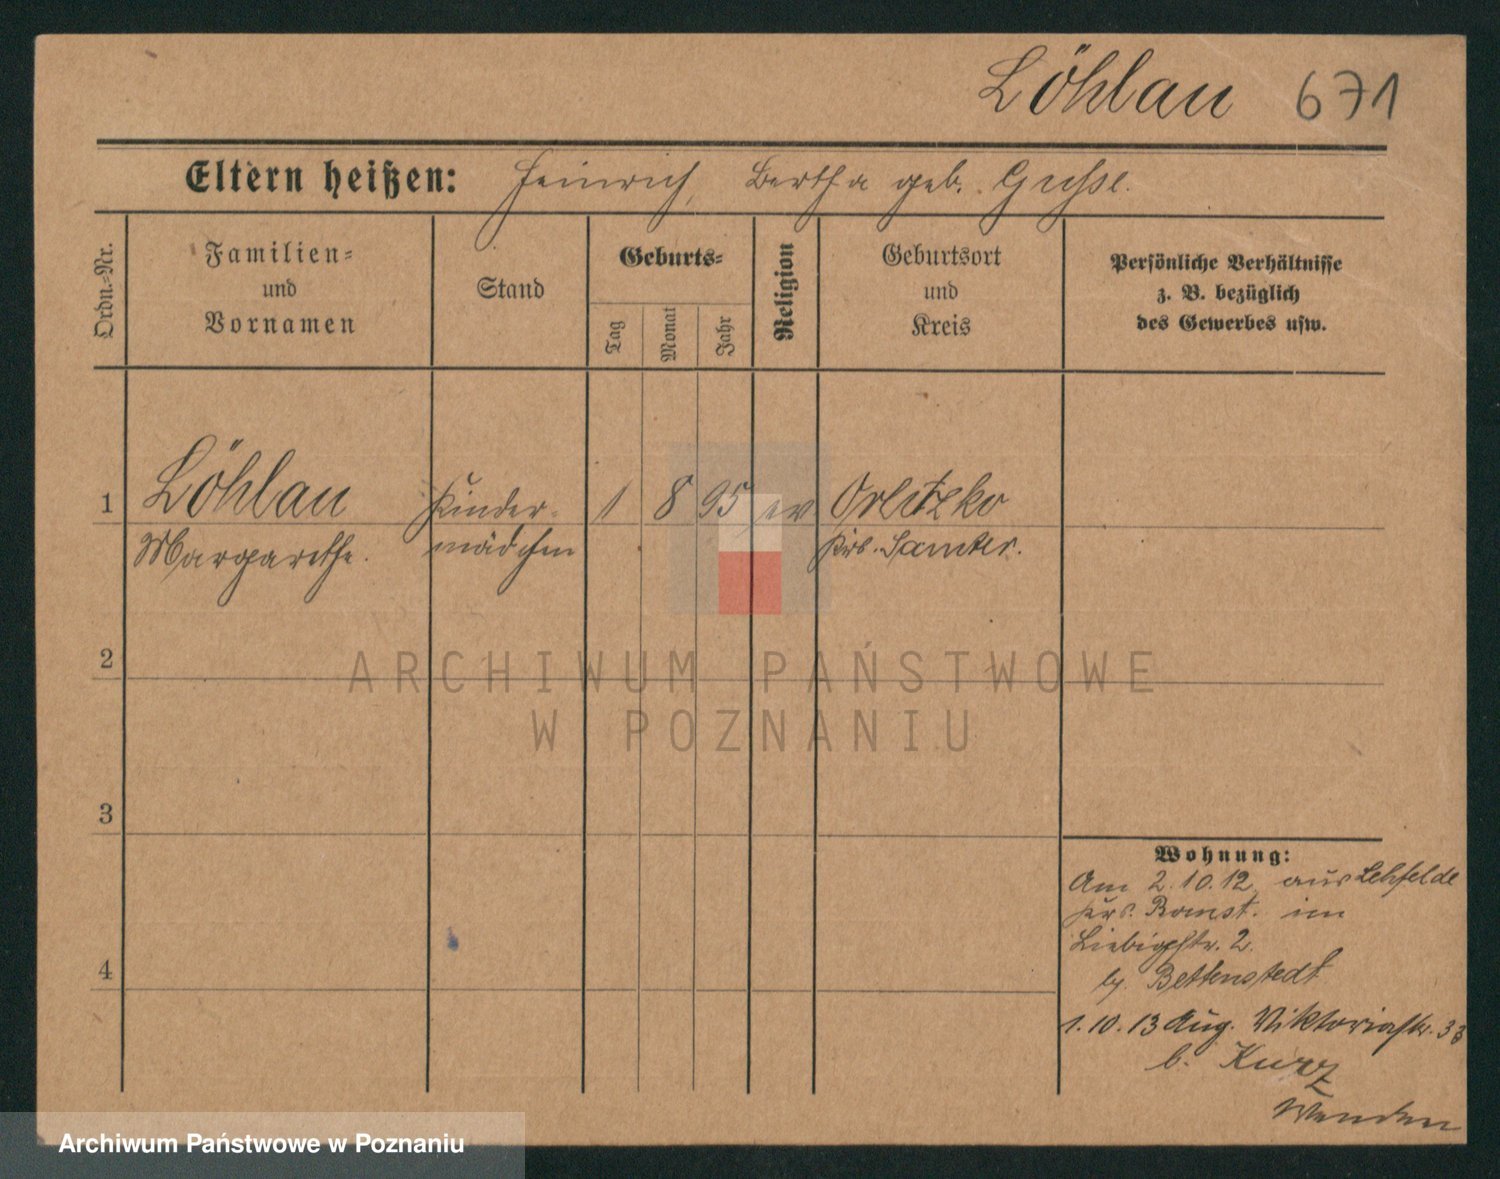 Löhlau 671
Eltern heißen: Heinrich, Bertha geb. Guhse.
Ordn.-Nr.
Familien- und Vornamen
Stand
Geburts-
Tag
Monat
Jahr
Religion
Geburtsort und Kreis
Persönliche Verhältnisse
z. B. bezüglich
des Gewerbes usw.
1 Löhlau Kinder- 1 8 95 ev Orlitzko
Margarethe. mädchen Krs. Samter.
2
ARCHIWUM PAŃSTWOWE
W POZNANIU
3
4
Wohnung:
Am 2.10.12 aus Lehfelde
Krs. Bomst. im
Liebigstr. 2.
Bettenstedt
1.10.13 Aug. Viktoriastr. 33
b. Kurz
Wenden
Archiwum Państwowe w Poznaniu